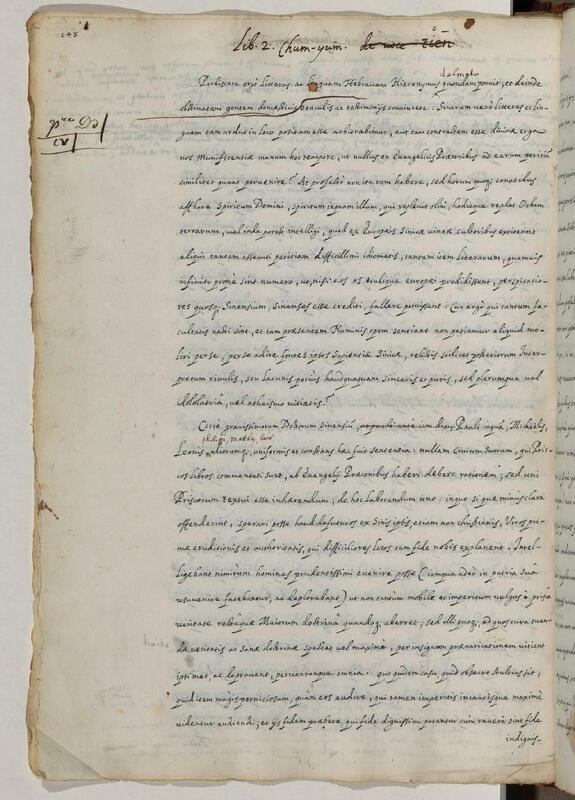 248
Lib. 2. Chum-yum. de voce Tien
dainde
Perdiscere ergo literas ac linguam Hebræam Hieronymus quondam potuit, et deinde
obstinatam gentem domesticis oraculis ac testimonijs convincere: Sinarum vero literas et lin-
guam tam arduo in loco positam esse arbitrabimur, aut tam contractam esse divinæ erga
nos Munificentiæ manum hoc tempore, ut nullus ex Evangelicis Præconibus ad earum peritiam
similiter queat pervenire? At profecto non ita rem habere, sed horum quoque conatibus
afflare Spiritum Domini, spiritum inquam illum, qui replevit olim, hodieque replet Orbem
terrarum, vel inde potest intelligi, quod ex Europæis Sinicæ vineæ cultoribus extiterint
aliqui tantam assecuti peritiam difficillimi idiomatis, tantam item literarum, quamvis
infinitæ prope sint numero, ut, nisi eos os vultusque europæi prodidissent, perspicacio-
res quosque Sinensium, Sinenses esse crediti, fallere potuissent: Cur ergo qui tantum fa-
cultatis nacti sint, et tam præsentem Numinis opem sentiant non patiamur aliquid mo-
liri per se, per se adire fontes ipsos Sapientiæ Sinicæ, relictis scilicet posteriorum Inter-
pretum rivulis, seu lacunis potius haudquaquam sinceris et puris, sed plerumque vel
idololatriâ, vel atheismo vitiatis?
Certe gravissimorum Doctorum Sinensium, ut paulo ante iam dixi, Pauli inquam, Michaelis,
Leonis, aliorumque uniformis et constans hæc fuit sententia: nullam civium suorum, qui Pris-
cos libros commentati sunt, ab Evangelij Præconibus haberi debere rationem; sed uni
Priscorum textui esse inhærendum; de hoc laborandum uno: in quo si quæ minus clara
offenderint, sperari posse haud defuturos ex Sinis ipsis, etiam non christianis, Viros pri-
mæ eruditionis et authoritatis, qui difficiliores locos cum fide nobis explanent. Intel-
ligebant nimirum homines prudentissimi evenire posse (iamque adeo in patria suâ
usuvenire fatebantur, ac deplorabant) ut non tantum mobile et imperitum vulgus a priscâ
veritate rectaque Maiorum doctrinâ quandoque aberret; sed illi quoque, ad quos cura tuen-
dæ veritatis ac sanæ doctrinæ spectat vel maxime, per insignem prævaricationem vitient
ipsi met, ac depravent, pervertantque omnia: quo quidem casu, quid obsecro stultius sit,
quid item magis perniciosum, quam eos audire, qui tamen imperitis incautisque maxime
videntur audiendi; et ijs fidem præbere, qui fide dignissimi putantur cum revera sint fide
indignis-